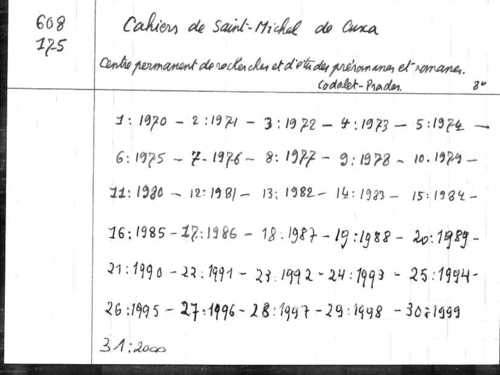 608
175
Cahiers de Saint-Michel de Cuxa
Centre permanent de recherches et d'études préromanes et romanes.
Codalet-Prades. 8°
1:1970 - 2:1971 - 3:1972 - 4:1973 - 5:1974 -
6:1975 - 7-1976 - 8:1977 - 9:1978 - 10.1979 -
11:1980 - 12:1981 - 13:1982 - 14:1983 - 15:1984 -
16:1985 - 17:1986 - 18.1987 - 19:1988 - 20:1989 -
21:1990 - 22.1991 - 23.1992 - 24:1993 - 25:1994 -
26:1995 - 27:1996 - 28:1997 - 29:1998 - 30:1999
31:2000